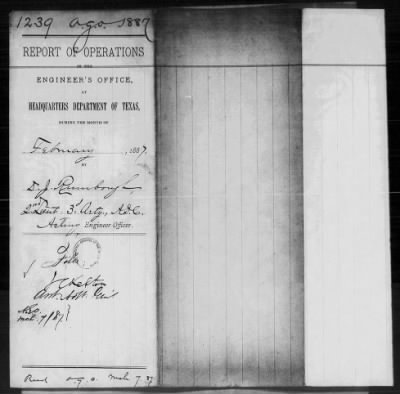 1239 A.G.O. 1887
REPORT OF OPERATIONS
IN THE
ENGINEER'S OFFICE,
AT
HEADQUARTERS DEPARTMENT OF TEXAS,
DURING THE MONTH OF
February, 1887,
BY
D. J. Rumbough,
2nd Lieut. 3d Arty., A.D.C.
Acting Engineer Officer.
File
J C Kelton
Asst. Adjt. Genl
A.G.O.
Mch. 7/87
Recd A.G.O. Mch 7. 87